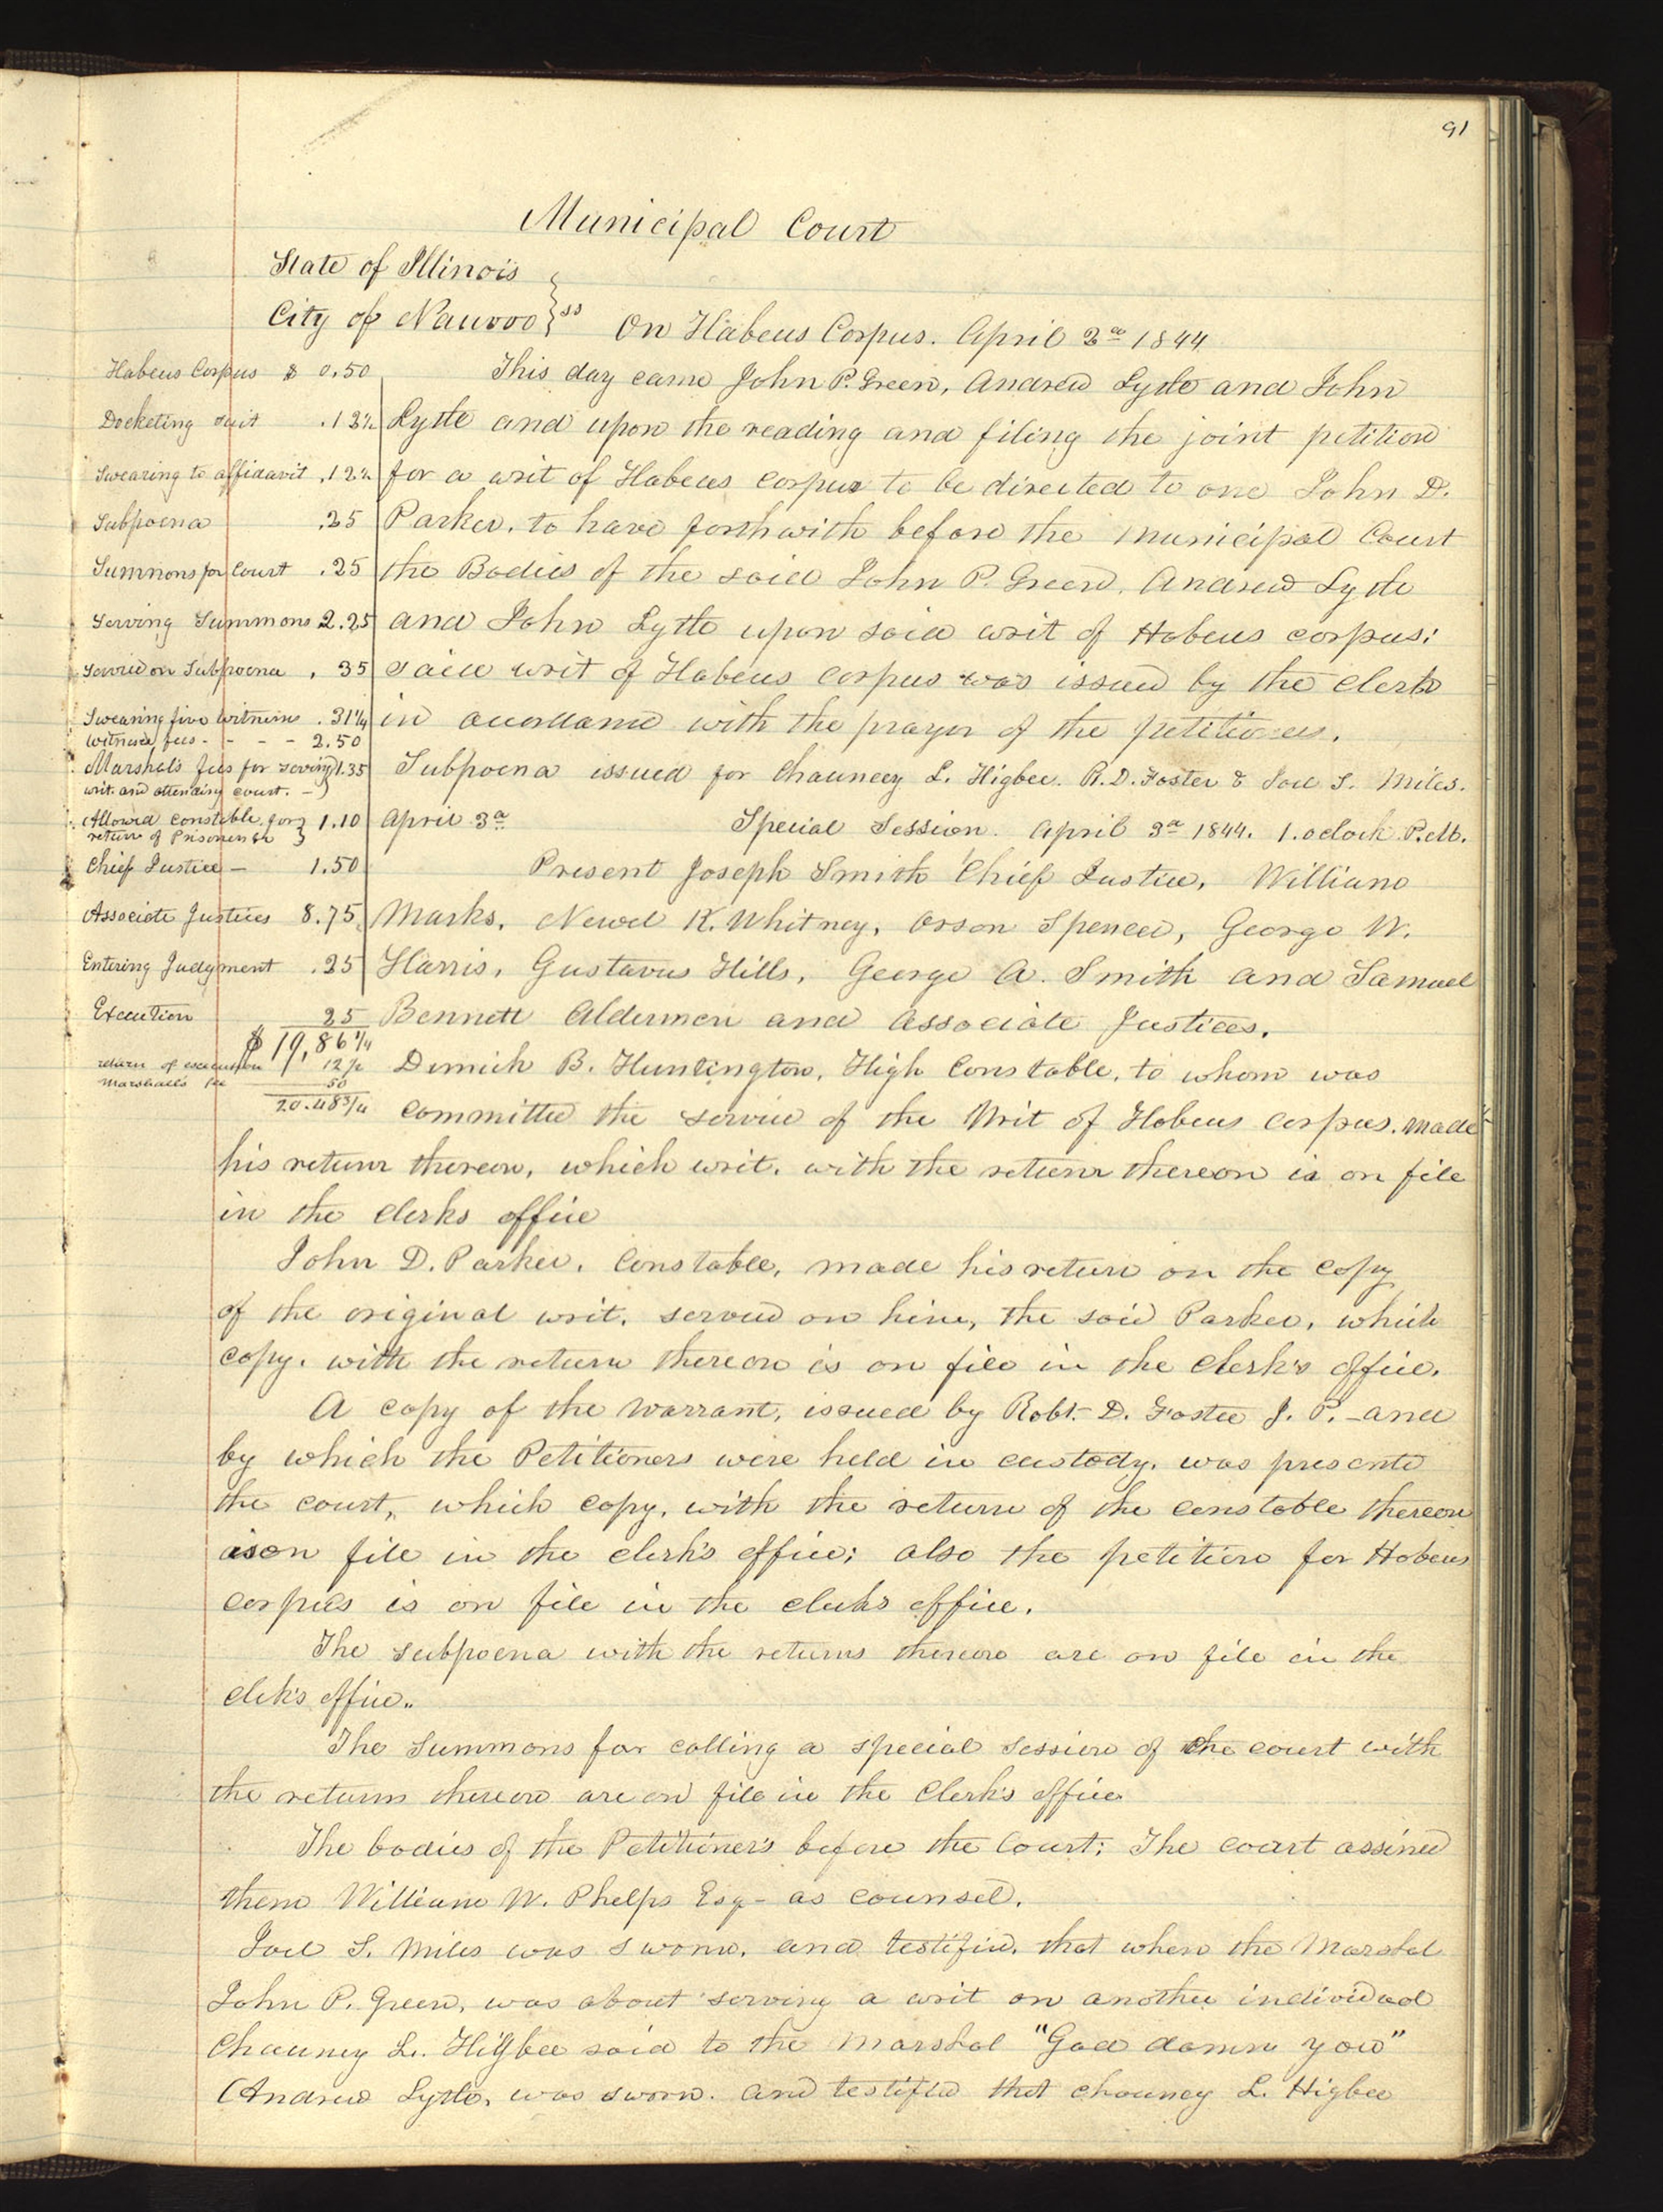 91
Municipal Court
State of Illinois
City of Nauvoo } ss On Habeus Corpus. April 2d 1844
Habeus Corpus $ 0.50
This day came John P. Green, Andrew Lytle and John
Docketing suit .12½
Lytle and upon the reading and filing the joint petition
Swearing to affidavit .12½
for a writ of Habeus Corpus to be directed to one John D.
Subpoena .25
Parker, to have forthwith before the Municipal Court
Summons for Court .25
the Bodies of the said John P. Green, Andrew Lytle
Serving Summons 2.25
and John Lytle upon said writ of Habeus corpus;
Service on Subpoena .35
said writ of Habeus corpus was issued by the Clerk
Swearing five witness .31¼
in accordance with the prayer of the petitioners.
Witness fees - - - - 2.50
Marshal's fees for serving } 1.35
writ and attending court. -
Subpoena issued for Chauncey L. Higbee. R. D. Foster & Joel S. Miles.
Allowed constable for } 1.10
return of Prisoners &c
April 3d Special Session. April 3d 1844. 1. oclock P.M.
Chief Justice - 1.50
Present Joseph Smith Chief Justice, William
Associate Justices 8.75
Marks, Newel K. Whitney, Orson Spencer, George W.
Entering Judgment .25
Harris, Gustavus Hills, George A. Smith and Samuel
Execution 25
Bennett Aldermen and Associate Justices.
$ 19,86¼
return of execution 12½
Marshalls fee 50
20.48¾
Dimick B. Huntington, High Constable, to whom was
committed the service of the Writ of Habeus Corpus. made
his return thereon, which writ, with the return thereon is on file
in the clerks office
John D. Parker, Constable, made his return on the copy
of the original writ, served on him, the said Parker, which
copy, with the return thereon is on file in the clerk's office.
A copy of the warrant, issued by Robt. D. Foster J. P. - and
by which the Petitioners were held in custody, was presente
the court, which copy, with the return of the constable thereon
is on file in the clerk's office; also the petition for Habeus
corpus is on file in the clerks office.
The subpoena with the returns thereon are on file in the
clek's office..
The Summons for calling a special session of the court with
the returns thereon are on file in the Clerk's office
The bodies of the Petitioner's before the Court; The court assined
them William W. Phelps Esq - as counsel.
Joel S. Miles was sworn, and testified, that when the Marshal
John P. Green, was about serving a writ on another individual
Chauncy L. Higbee said to the Marshal "God damn you"
Andrew Lytle, was sworn. and testified that Chauncy L. Higbee